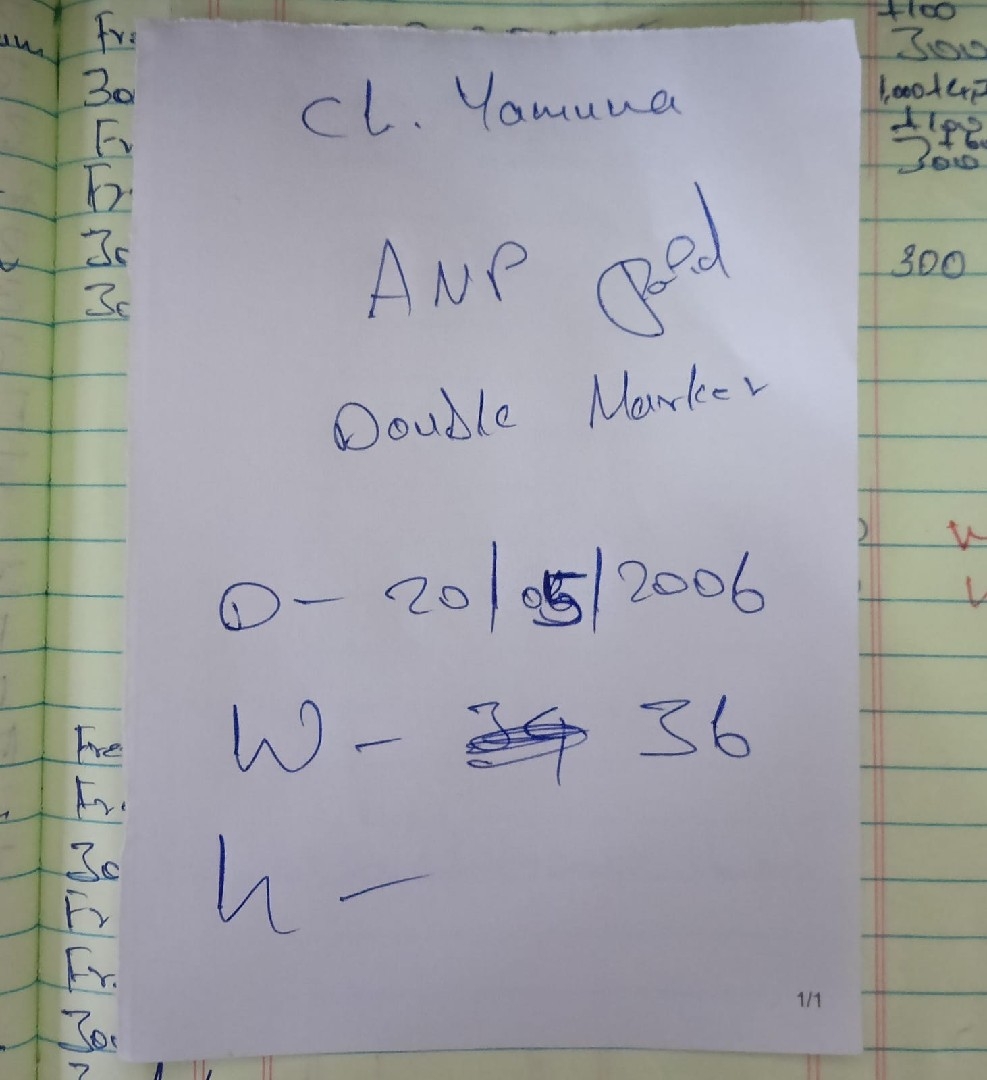 Ch. Yamuna
ANP Gold
Double Marker
D - 20/05/2006
W - 36
H -
1/1
Fr.
30
Fr
Fr
30
30
Fre
Fr.
30
Fr
Fr.
30
+100
300
1,000+
300
300